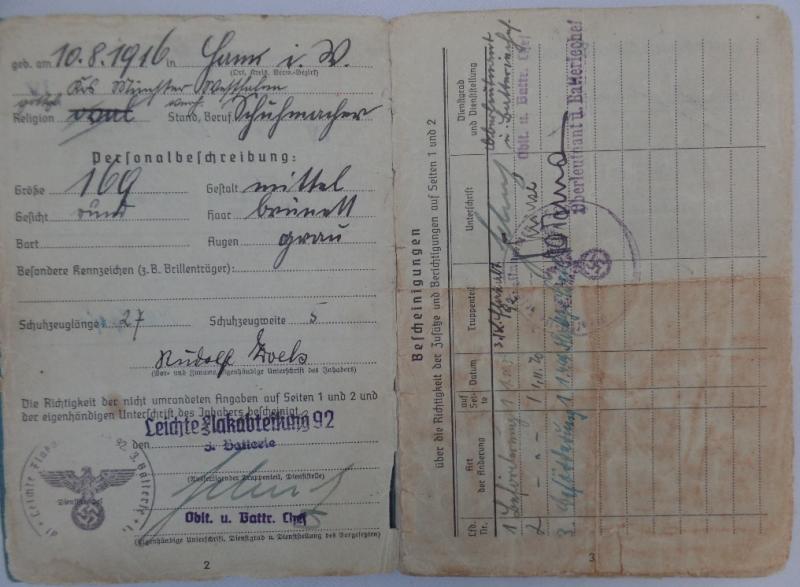 geb. am 10.8.1916 in Hamm i. W.
(Ort, Kreis, Verw.-Bezirk)
Krs Münster Westfalen
Religion Stand, Beruf Schuhmacher
Personalbeschreibung:
Größe 169 Gestalt mittel
Gesicht rund Haar brünett
Bart Augen grau
Besondere Kennzeichen (z.B. Brillenträger):
Schuhzeuglänge 27 Schuhzeugweite 5
Rudolf
(Vor- und Zuname, eigenhändige Unterschrift des Inhabers)
Die Richtigkeit der nicht umrandeten Angaben auf Seiten 1 und 2 und
der eigenhändigen Unterschrift des Inhabers bescheinigt
Leichte Flakabteilung 92
den
3. Batterie
(Ausfertigender Truppenteil, Dienststelle)
Dienstsiegel
Oblt. u. Battr. Chef
(Eigenhändige Unterschrift, Dienstgrad u. Dienststellung des Vorgesetzten)
2
Bescheinigungen
über die Richtigkeit der Zusätze und Berichtigungen auf Seiten 1 und 2
Lfd. Nr.
Art der Änderung
auf Seite
Datum
Truppenteil
Unterschrift
Dienstgrad und Dienststellung
1 Beförderung 1
Oblt. u. Battr. Chef
2 - " - 1
3. Beförderung 1
Oberleutnant u. Batteriechef
3